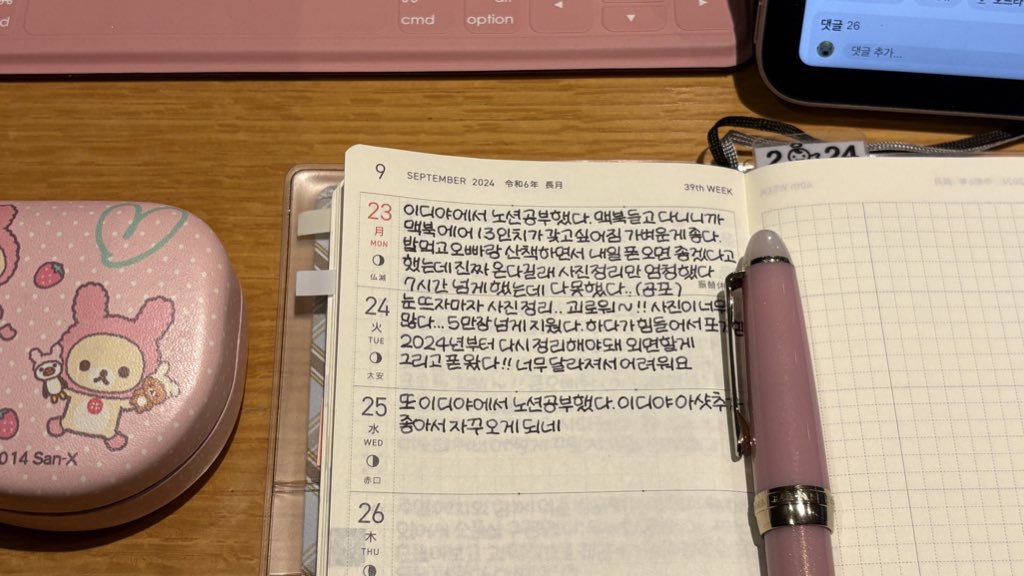 cmd
option
댓글 26
댓글 추가...
2024
9 SEPTEMBER 2024 令和6年 長月 39th WEEK
23 月 MON 仏滅
이디야에서 노션공부했다. 맥북들고 다니니까
맥북에어 13인치가 갖고싶어짐 가벼운게 좋다.
밥먹고 오빠랑 산책하면서 내일 폰오면 좋겠다고
했는데 진짜 온다길래 사진정리만 엄청했다
7시간 넘게 했는데 다 못했다.. (공포) 振替休
24 火 TUE 大安
눈뜨자마자 사진정리.. 괴로워~!! 사진이너무
많다... 5만장 넘게 지웠다. 하다가 힘들어서
2024년부터 다시 정리해야돼 외면할게
그리고 폰 왔다!! 너무 달라져서 어려워요
25 水 WED 赤口
또 이디야에서 노션공부했다. 이디야 아샷추가
좋아서 자꾸오게 되네
26 木 THU
2014 San-X